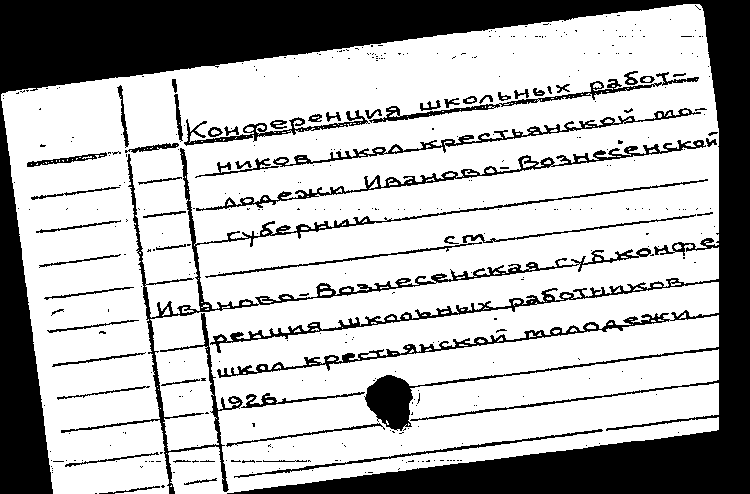 Конференция школьных работ-
ников школ крестьянской мо-
лодежи Иваново-Вознесенской
губернии.
см.
Иваново-Вознесенская губ.конфе-
ренция школьных работников
школ крестьянской молодежи.
1926.